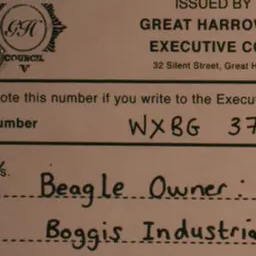 ISSUED BY
GREAT HARROW
EXECUTIVE CO
32 Silent Street, Great H
GH
COUNCIL
ote this number if you write to the Execu
umber WXBG 37
s. Beagle Owner:
Boggis Industria